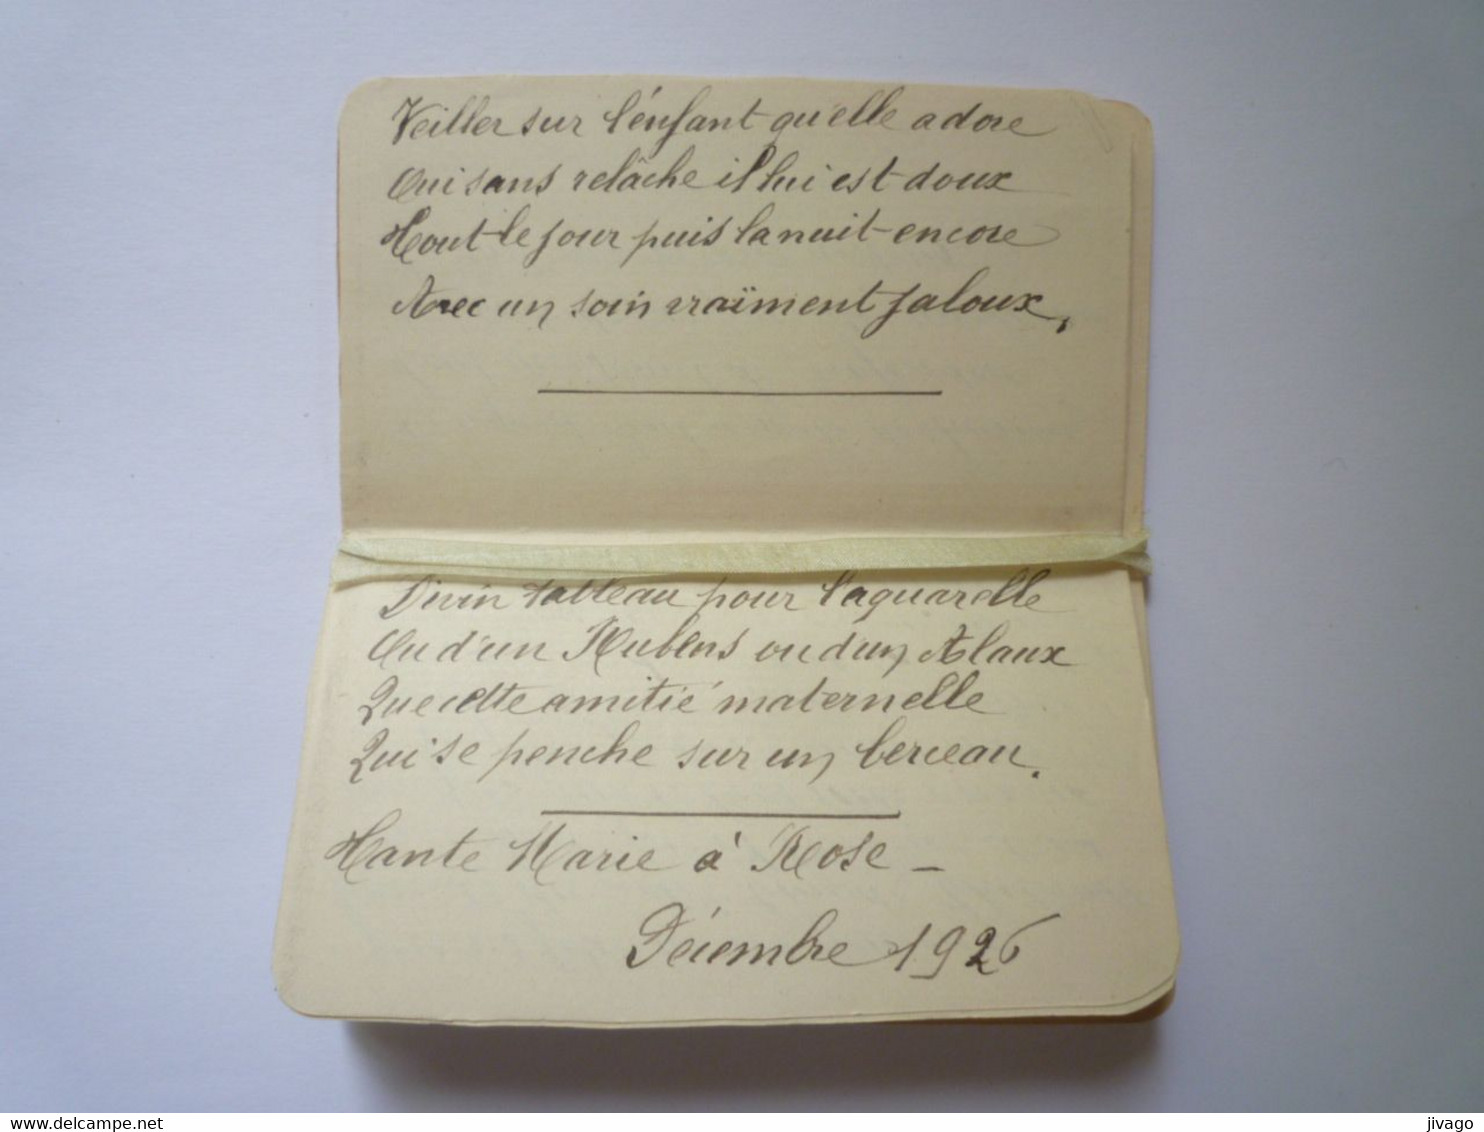 Veiller sur l'enfant qu'elle adore
Oui sans relâche il lui est doux
Tout le jour puis la nuit encore
Avec un soin vraïment jaloux,
Divin tableau pour l'aquarelle
Ou d'un Rubens ou d'un Alaux
Que cette amitié maternelle
Qui se penche sur un berceau.
Tante Marie à Rose -
Décembre 1926
delcampe.net
jivago